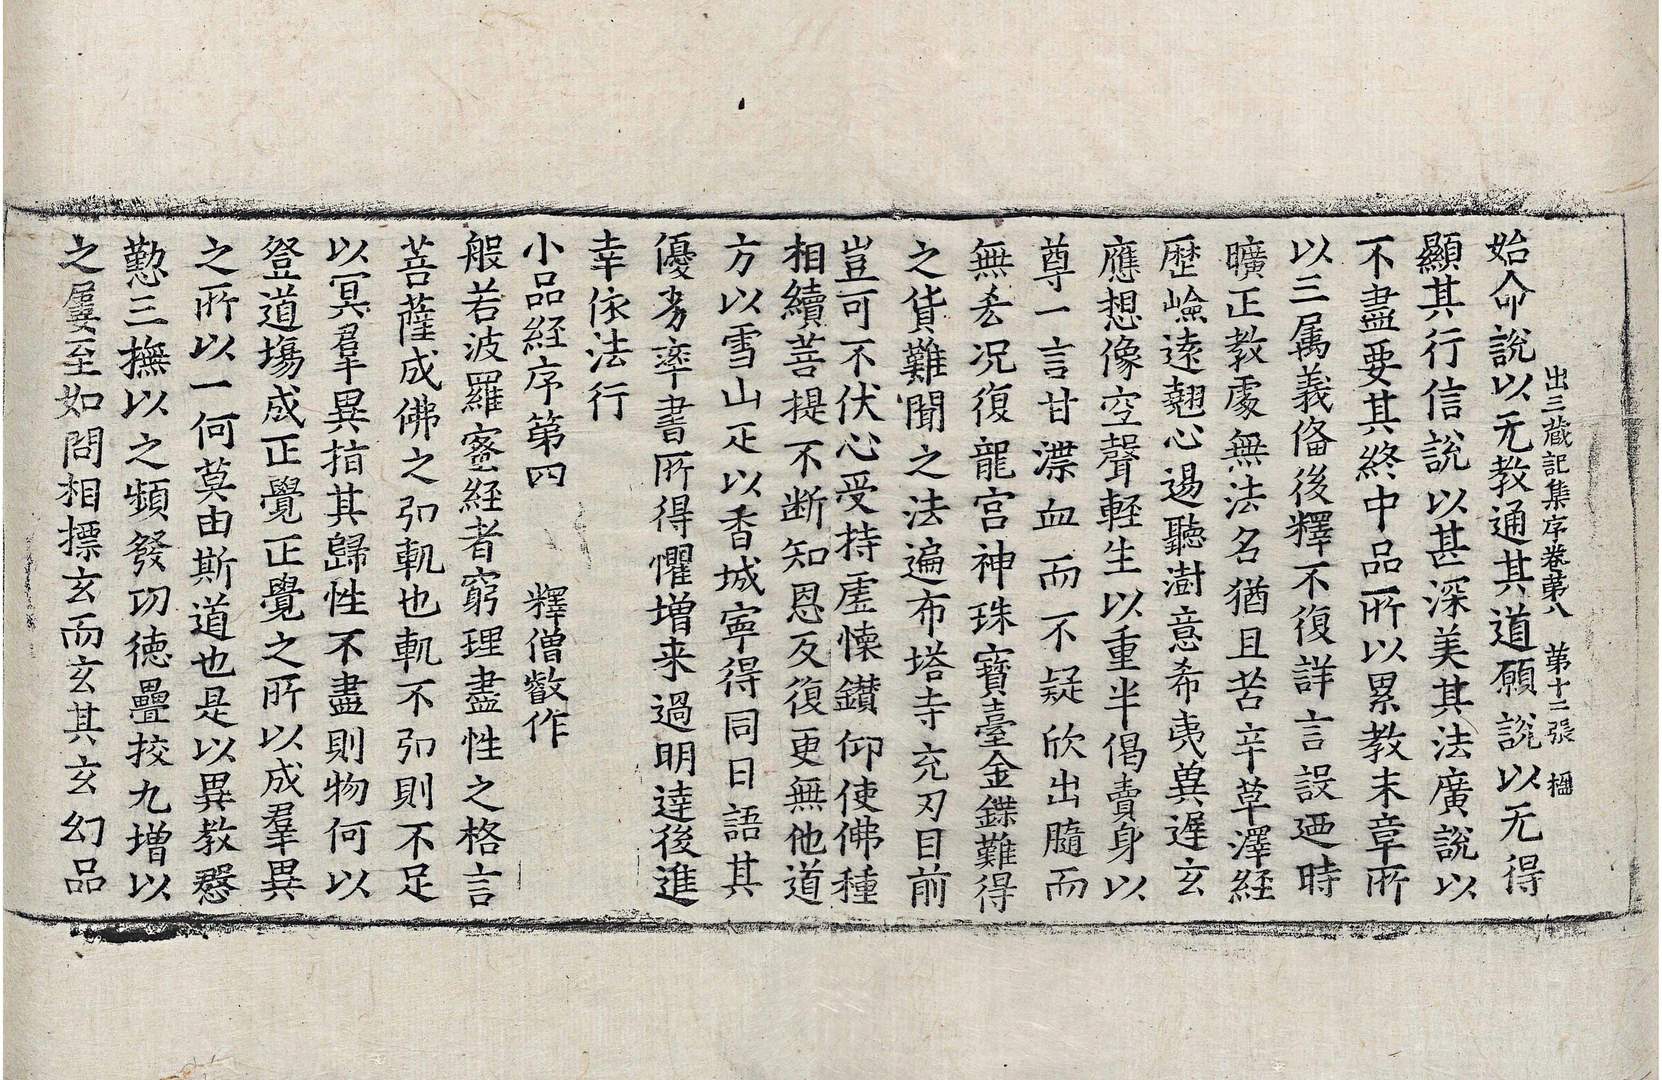 出三藏記集序卷第八 第十二張 楹
始命說以无教通其道願說以无得
顯其行信說以甚深美其法廣說以
不盡要其終中品所以累教末章所
以三属義俻後釋不復詳言設迺時
曠正教處無法名猶且苦辛草澤経
歴嶮遠翹心遏聽澍意希夷冀遅玄
應想像空聲輕生以重半偈賣身以
尊一言甘渫血而不疑欣出髓而
無㳟况復龍宮神珠寶臺金鍱難得
之貨難聞之法遍布塔寺充刃目前
豈可不伏心受持虛懐鑚仰使佛種
相續菩提不断知恩反復更無他道
方以雪山疋以香城寧得同日語其
優劣率書所得懼増来過明達後進
幸依法行
小品経序第四 釋僧叡作
般若波羅蜜経者窮理盡性之格言
菩薩成佛之弘軌也軌不弘則不足
以冥羣異指其歸性不盡則物何以
登道場成正覺正覺之所以成羣異
之所以一何莫由斯道也是以異教慇
懃三撫以之頻發功徳疊挍九増以
之屢至如問相摽玄而玄其玄幻品